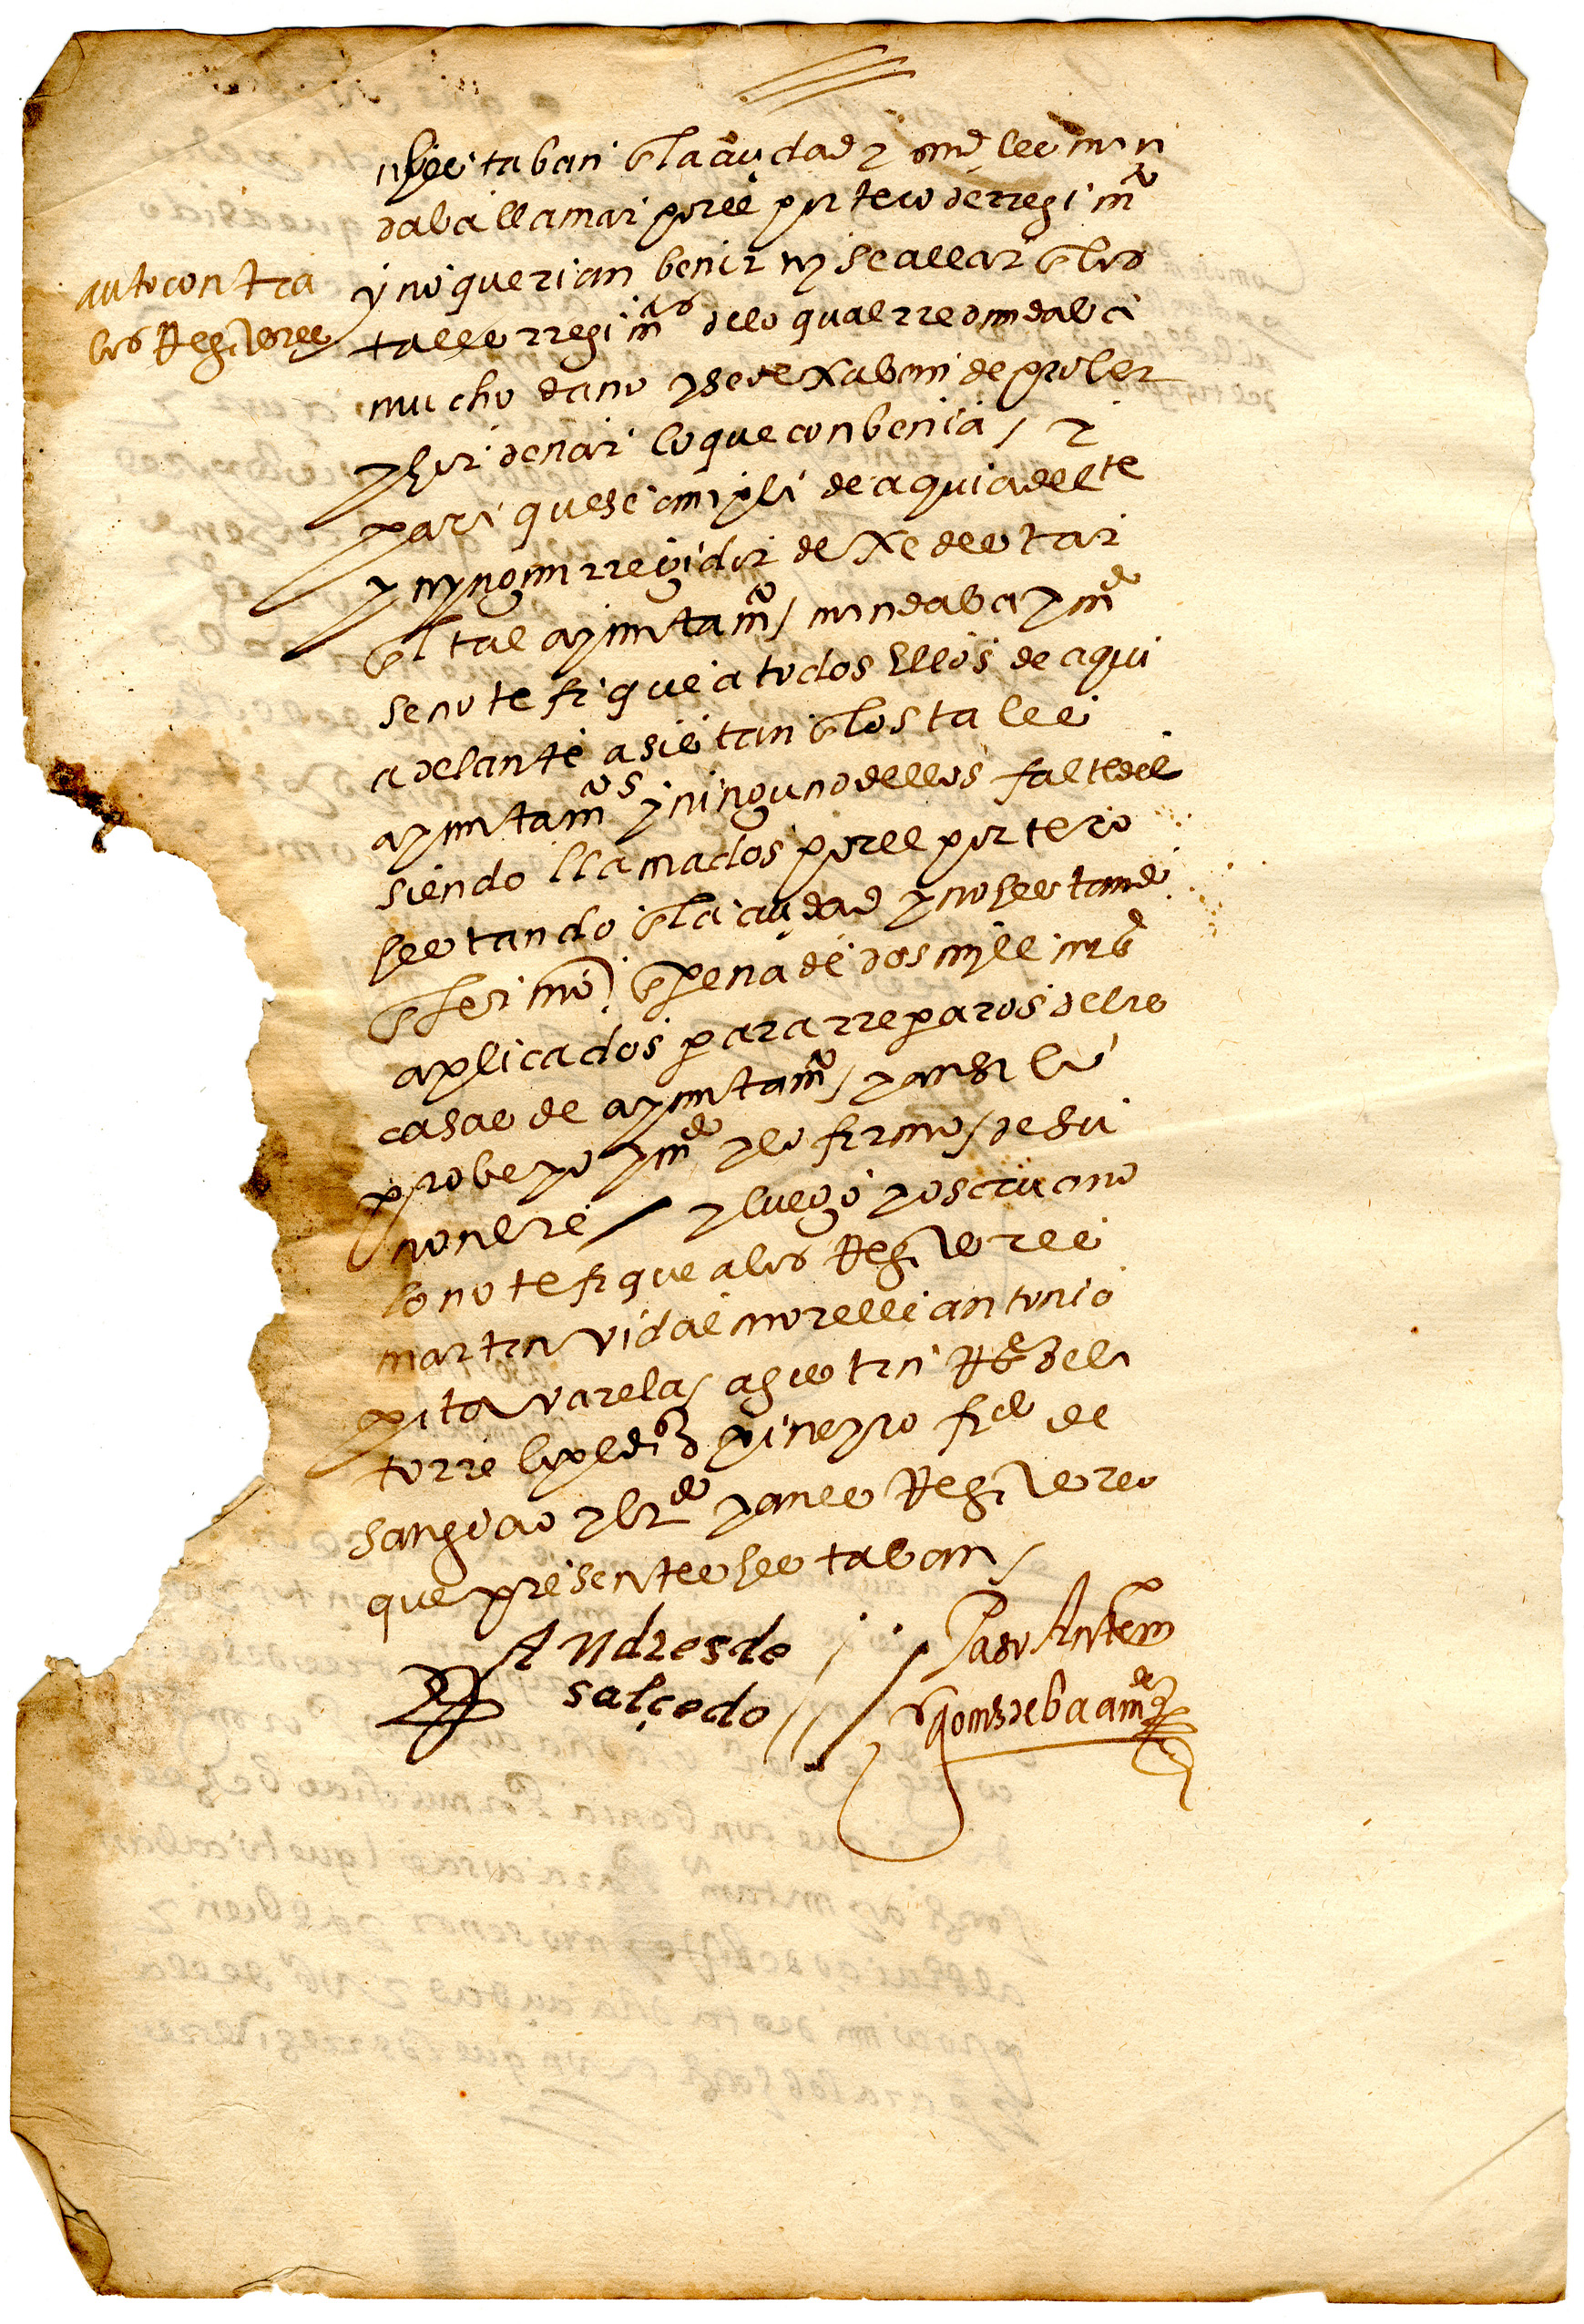 auto contra
los Regidores
estaban en la ciudad y aunque les man
daba llamar por el portero de regimio
y no querian benir ny se allar en los
tales rregimos de lo qual rredundaba
mucho dano y se dexaban de prober
y hordenar lo que conbenia / y
para que se cunpla de aqui adelte
y nyngun rregidor dexe de estar
en tal ayuntamo / mandaba y mdo
se notefique a todos ellos de aqui
adelante asistan en los tales
ayuntamos y ninguno dellos falte del
siendo llamados por el portero
estando en la ciudad y no estando
enfermo / en pena de dos myll mrs
aplicados para rreparos de las
casas de ayuntamo / y ansi lo
probeyo y mdo y lo firmo / de su
nonbre / y luego yo escriuano
lo notefique a los Regidores
martin vidal morelle antonio
pita varela / agustin Rs de la
torre lope diz pineyro frco de
sangiao y hrdo yanes Regidores
que presentes estaban /
Andres de
salçedo
Paso Ante my
gomz de baamde